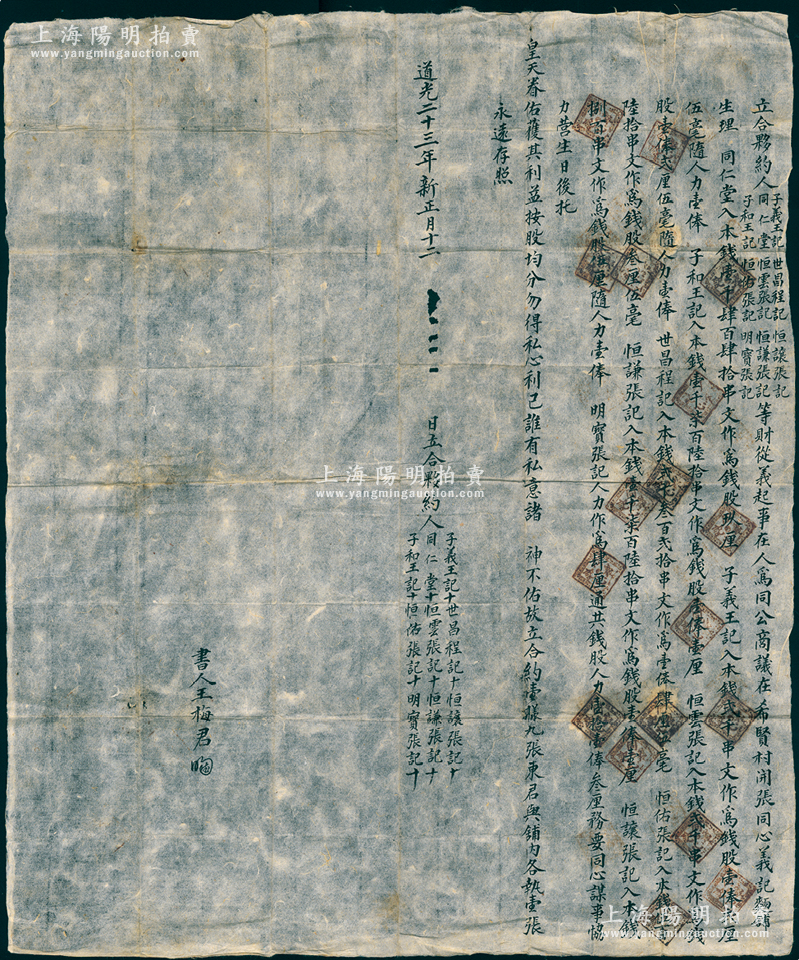 上海陽明拍賣
www.yangmingauction.com
立合夥約人
子義王記 世昌程記 恒讓張記
同仁堂 恒雲張記 恒謙張記
子和王記 恒佑張記 明寶張記
等財從義起事在人爲同公商議在希賢村開張同心義記麵鋪
生理 同仁堂入本錢壹千肆百肆拾串文作爲錢股玖厘 子義王記入本錢弍千串文作爲錢股壹俸弍厘
伍毫隨人力壹俸 子和王記入本錢壹千柒百陸拾串文作爲錢股壹俸壹厘 恒雲張記入本錢弍千串文作爲錢
股壹俸弍厘伍毫隨人力壹俸 世昌程記入本錢弍千叁百弍拾串文作爲壹俸肆厘伍毫 恒佑張記入本錢
陸拾串文作爲錢股叁厘伍毫 恒謙張記入本錢壹千柒百陸拾串文作爲錢股壹俸壹厘 恒讓張記入本錢
捌百串文作爲錢股伍厘隨人力壹俸 明寶張記人力作爲肆厘通共錢股人力壹拾壹俸叁厘務要同心謀事協
力營生日後托
皇天眷佑獲其利益按股均分勿得私心利己誰有私意諸 神不佑故立合約壹樣九張東君與鋪內各執壹張
永遠存照
道光二十三年新正月十二 日立合夥約人
子義王記十世昌程記十恒讓張記十
同仁堂十恒雲張記十恒謙張記十
子和王記十恒佑張記十明寶張記十
書人王梅君
上海陽明拍賣
www.yangmingauction.com
上海陽明拍賣
www.yangmingauction.com